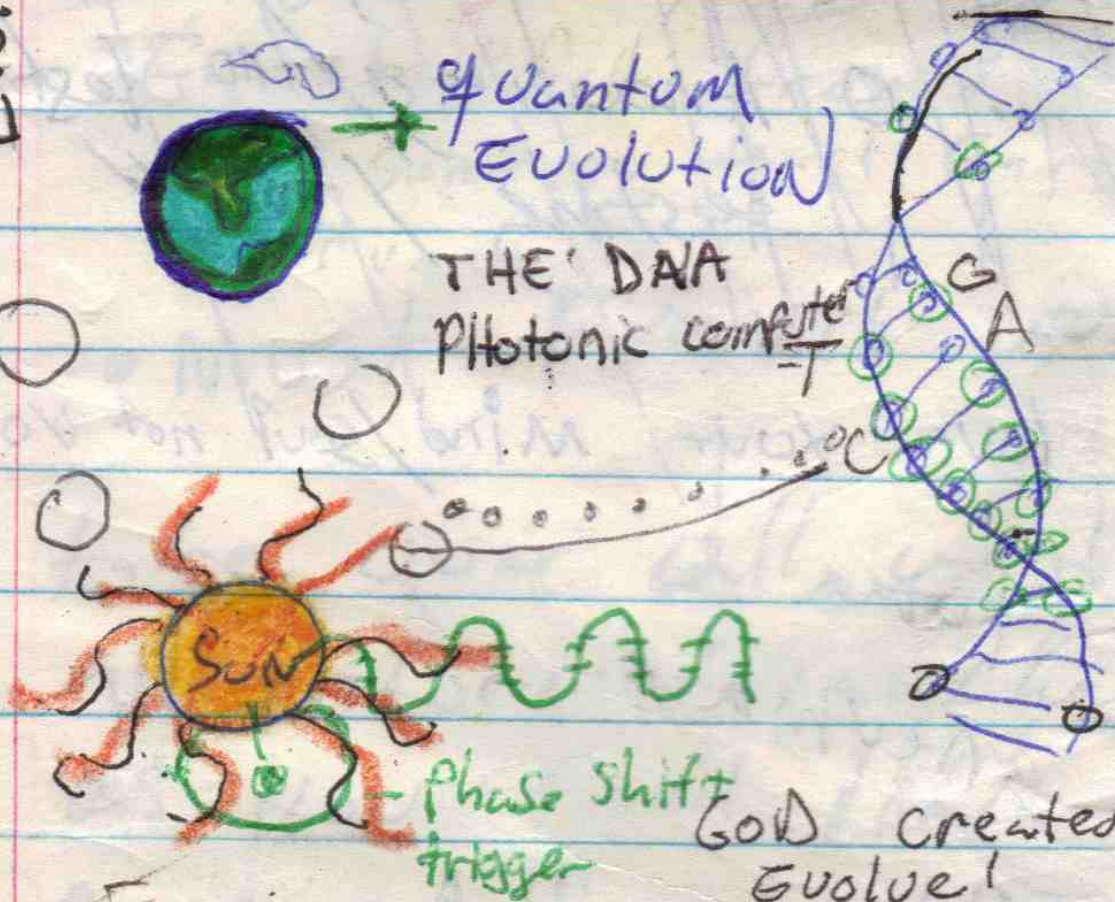 Quantum
Evolution
THE DNA
PHotonic computer
G
A
T
C
SUN
phase shift
trigger
GOD created
Evolve!